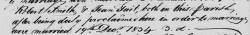 Robert Smith & Jean Tait, both in this Parish,
after being duly proclaimed here in order to marriage,
were married 19th Decr. 1834. 3. d.